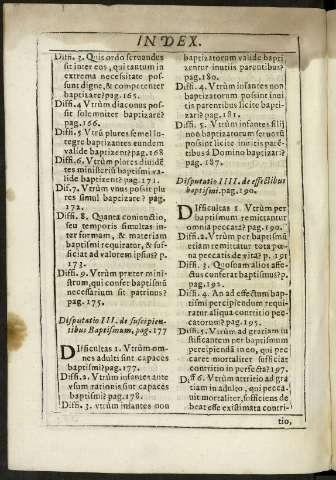 INDEX.
Diffi. 3. Quis ordo seruandus
sit inter eos, qui tantum in
extrema necessitate pos-
sunt digne, & competenter
baptizare? pag. 165.
Diffi. 4 Vtrùm diaconus pos-
sit solemniter baptizare?
pag. 166.
Diffi. 5 Vtrũ plures semel in-
tegre baptizantes eundem
valide baptizent? pag. 168
Diffi. 6. Vtrùm plores diuidẽ-
tes ministeriũ baptismi va-
lide baptizent? pag. 171.
Dif. 7. Vtrùm vnus possit plu
res simul baptizare? pag.
172.
Diffi. 8. Quanta coniunctio,
seu temporis simultas in-
ter formam, & materiam
baptismi requiratur, & suf-
ficiat ad valorem ipsius? p.
173.
Diffi. 9. Vtrùm præter mini-
strum, qui confer baptismũ
necessarium sit patrinus?
pag. 175.
Disputatio III. de suscipien-
tibus Baptismum, pag. 177
Difficultas 1. Vtrùm om-
nes adulti sint capaces
baptismi? pag. 177.
Diffi. 2. Vtrùm infantes ante
vsum rationis sint capaces
baptismi? pag. 178.
Diffi. 3. vtrùm infantes non
baptizatorum valide bapti
zentur inuitis parentibus?
pag. 180.
Diffi. 4. Vtrùm infantes non
baptizatorum possint inui
tis parentibus licite bapti-
zari? pag. 181.
Diffi. 5. Vtrùm infantes filij
non baptizatorum seruorũ
possint licite inuitis parẽ-
tibus à Domino baptizari?
pag. 187.
Disputatio IIII. de effectibus
baptismi. pag. 190.
Difficultas 1. Vtrùm per
baptismum remittantur
omnia peccata? pag. 190.
Diffi. 2. Vtrùm per baptismũ
etiam remittatur tota pœ-
na peccatis debita? p. 191
Diffi. 3. Quosnam alios affe-
ctus conferat baptismus? p.
pag. 192.
Diffi. 4. An ad effectum bap-
tismi percipiendum requi-
ratur aliqua contritio pec-
catorum? pag. 195.
Diffi. 5. Vtrùm ad gratiam iu
stificantem per baptismum
percipiendã in eo, qui pec-
caret mortaliter sufficiat
contritio in perfecta? 197.
Diff 6. Vtrùm attritio ad gra
tiam in adulto, qui peccaui
mortaliter, sufficiens de
beat esse existimata contri-
tio,